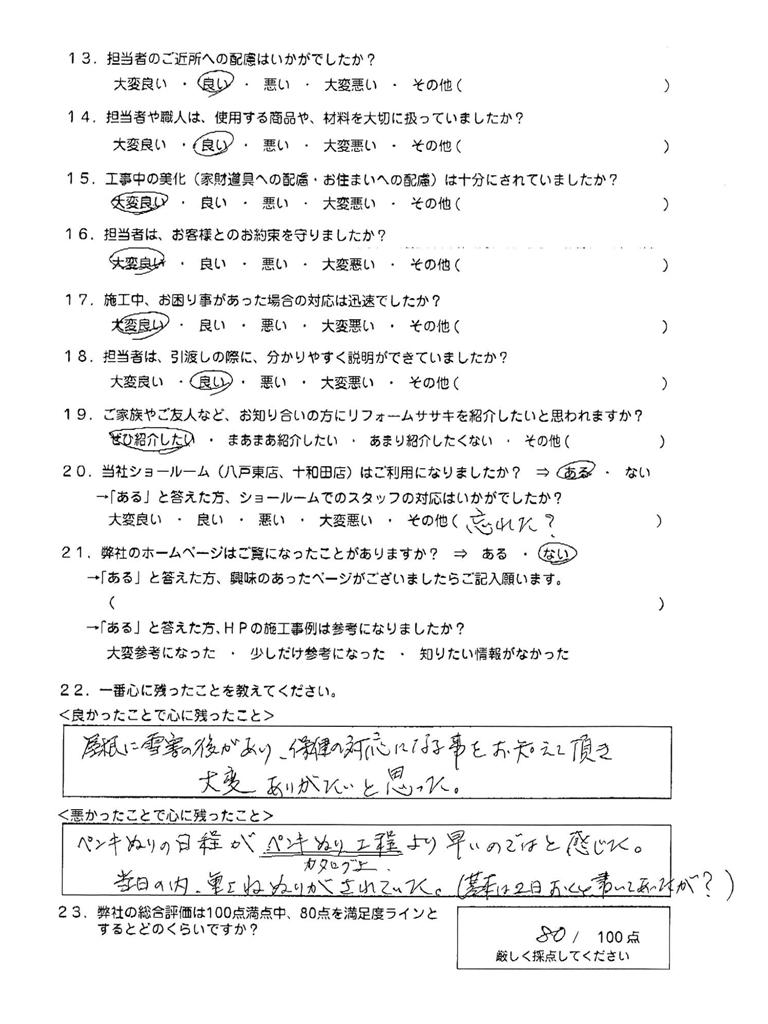 13．担当者のご近所への配慮はいかがでしたか？
大変良い ・ 良い ・ 悪い ・ 大変悪い ・ その他（　　　）
14．担当者や職人は、使用する商品や、材料を大切に扱っていましたか？
大変良い ・ 良い ・ 悪い ・ 大変悪い ・ その他（　　　）
15．工事中の美化（家財道具への配慮・お住まいへの配慮）は十分にされていましたか？
大変良い ・ 良い ・ 悪い ・ 大変悪い ・ その他（　　　）
16．担当者は、お客様とのお約束を守りましたか？
大変良い ・ 良い ・ 悪い ・ 大変悪い ・ その他（　　　）
17．施工中、お困り事があった場合の対応は迅速でしたか？
大変良い ・ 良い ・ 悪い ・ 大変悪い ・ その他（　　　）
18．担当者は、引渡しの際に、分かりやすく説明ができていましたか？
大変良い ・ 良い ・ 悪い ・ 大変悪い ・ その他（　　　）
19．ご家族やご友人など、お知り合いの方にリフォームササキを紹介したいと思われますか？
ぜひ紹介したい ・ まあまあ紹介したい ・ あまり紹介したくない ・ その他（　　　）
20．当社ショールーム（八戸東店、十和田店）はご利用になりましたか？ ⇒ ある ・ ない
→「ある」と答えた方、ショールームでのスタッフの対応はいかがでしたか？
大変良い ・ 良い ・ 悪い ・ 大変悪い ・ その他（ 忘れた？ ）
21．弊社のホームページはご覧になったことがありますか？ ⇒ ある ・ ない
→「ある」と答えた方、興味のあったページがございましたらご記入願います。
（　　　）
→「ある」と答えた方、ＨＰの施工事例は参考になりましたか？
大変参考になった ・ 少しだけ参考になった ・ 知りたい情報がなかった
22．一番心に残ったことを教えてください。
＜良かったことで心に残ったこと＞
屋根に雪害の後があり、保険の対応になる事をお知えて頂き
大変ありがたいと思った。
＜悪かったことで心に残ったこと＞
ペンキぬりの日程がペンキぬり工程より早いのではと感じた。
カタログよ
当日の内、重ねぬりがされていた。（基本は2日おくと書いてあったが？）
23．弊社の総合評価は100点満点中、80点を満足度ラインと
するとどのくらいですか？
80 / 100点
厳しく採点してください